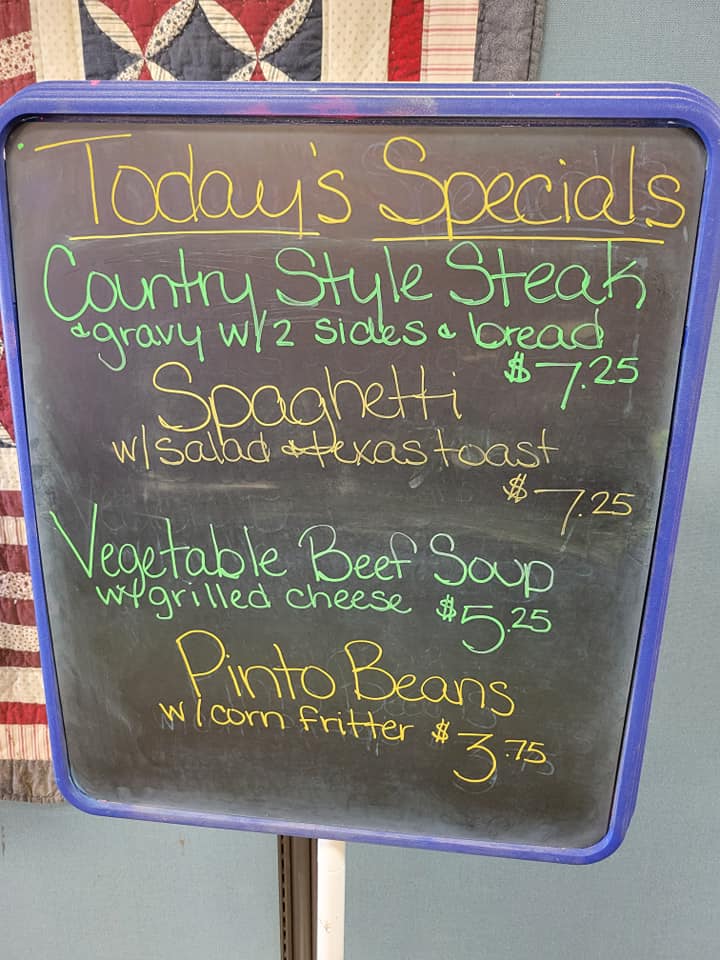 Today's Specials
Country Style Steak
& gravy w/2 sides & bread
$7.25
Spaghetti
w/salad & texas toast
$7.25
Vegetable Beef Soup
w/grilled cheese $5.25
Pinto Beans
w/corn fritter $3.75